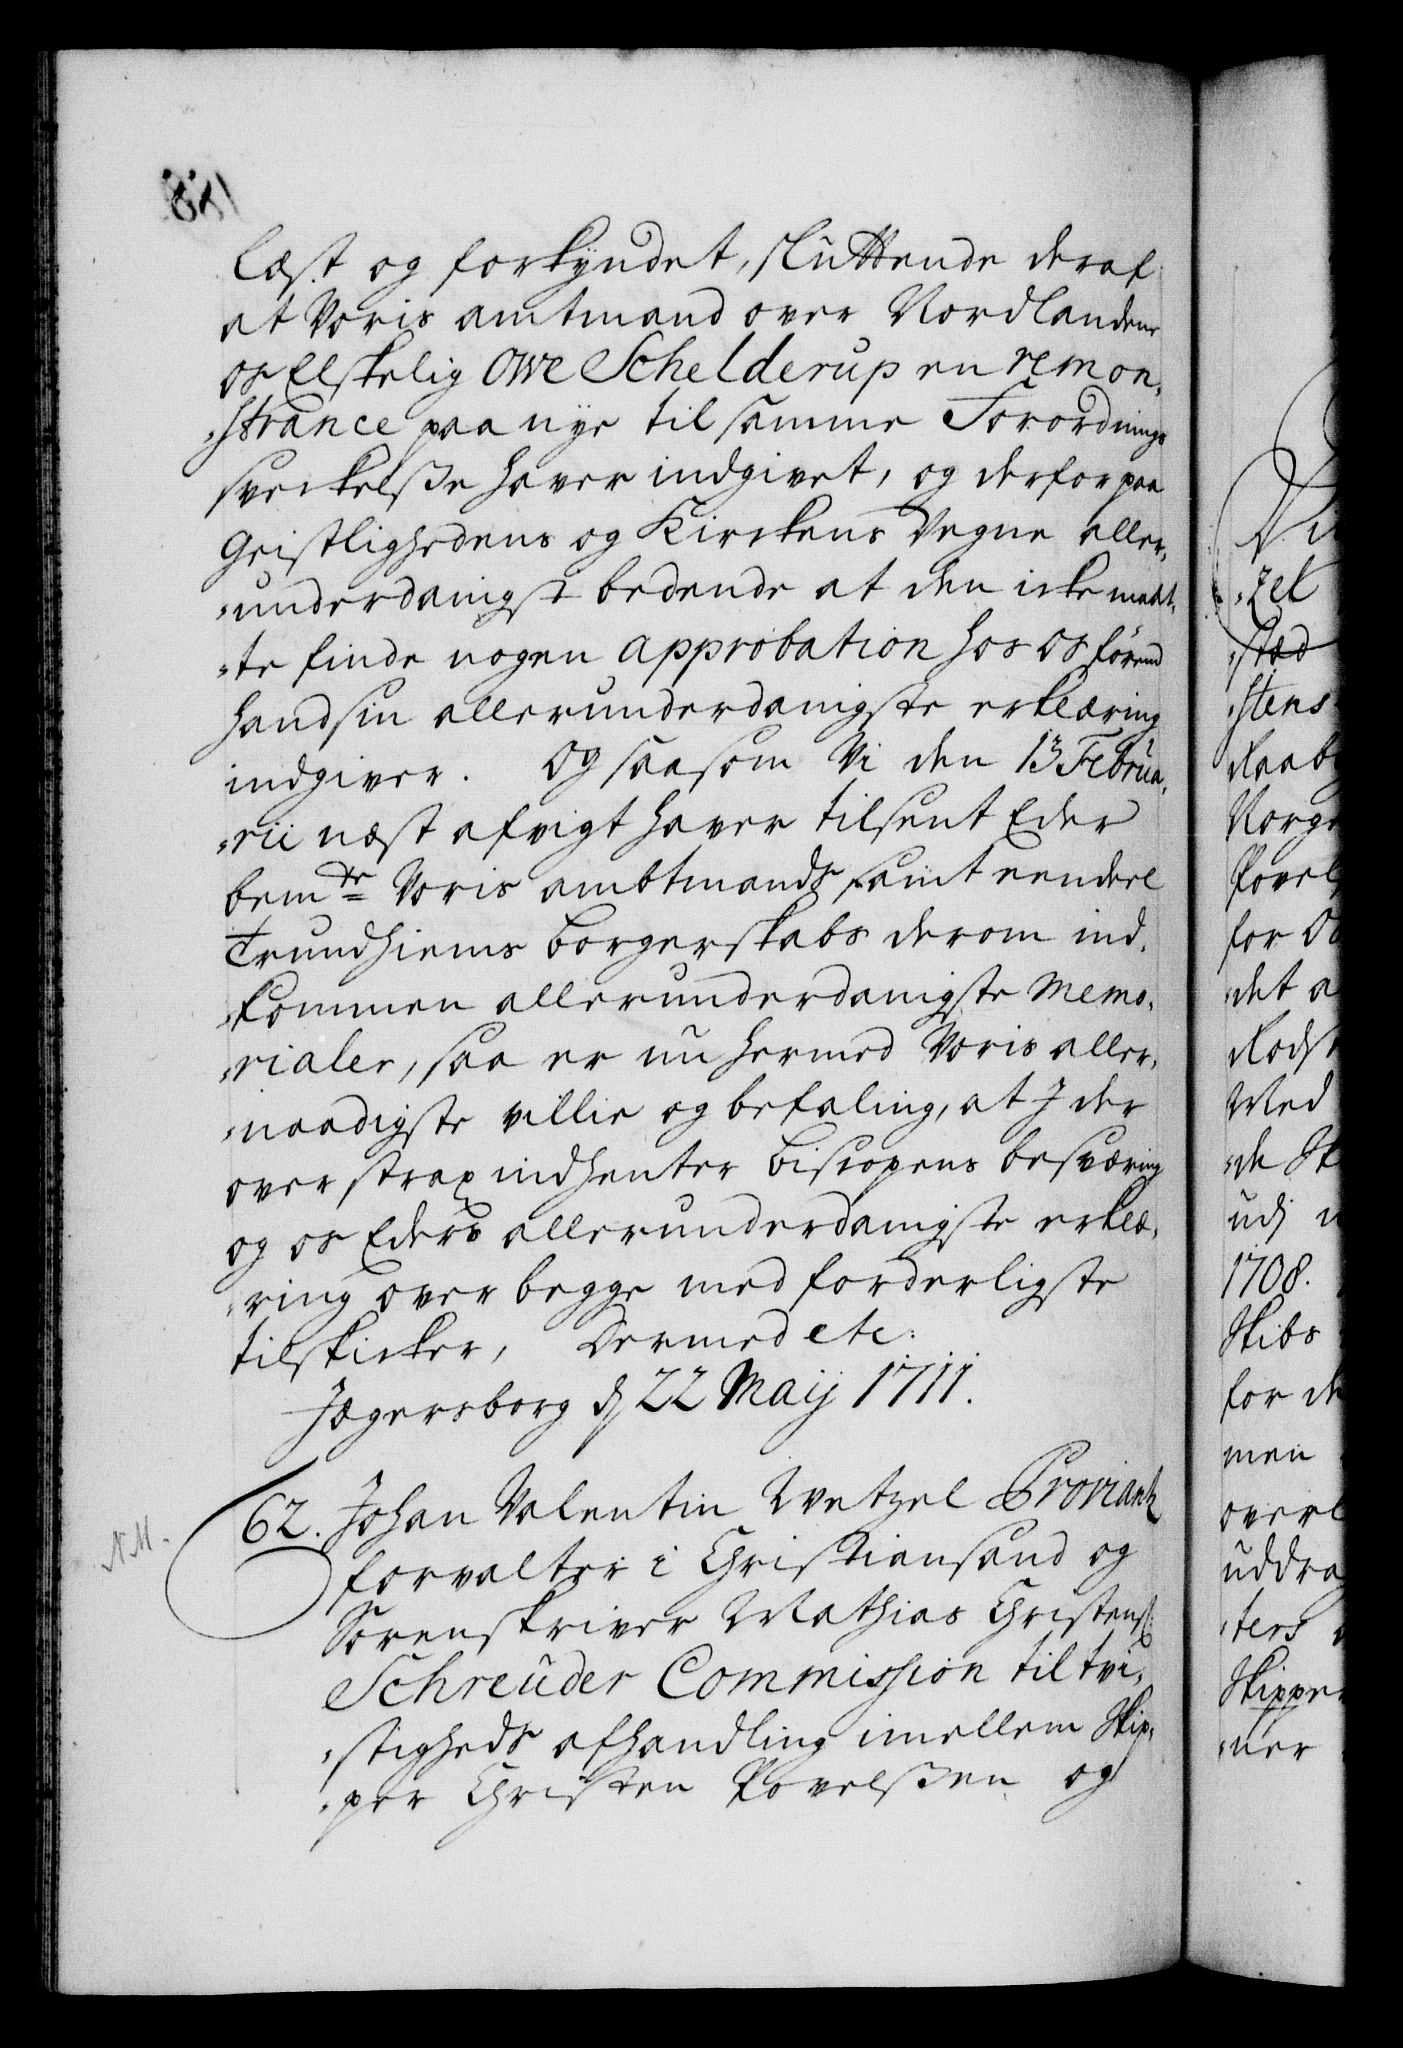 læst og forkyndet, sluttende deraf
at Voris amtmand over Nordlandene
os Elskelig Owe Schelderup en remon,
,strance paa nye til samme Forordnings
sverkelsße haver indgivet, og derfor paa
Geistlighedens og Kirckens Vegne aller,
,underdanigst bedende at den icke maat,
,te finde nogen approbation hos os förend
hand sin allerunderdanigste erklæring
indgiver. Og saasom Vi den 13 Februa,
,rii næst afvigt haver tilsent Eder
bemte Voris ambtmands samt een deel
Trundhiems borgerskabs derom ind,
,kommen allerunderdanigste Memo,
,rialer, saa er nu hermed Voris aller,
,naadigste villie og befaling, at J der
over strax indhenter biscopens besværing
og os Eders allerunderdanigste erklæ,
,ring over begge med forderligste
tilskicker, Dermed etc:
Jægersborg d 22 Maij 1711.
62. Johan Valentin Wetzel Proviant
N.M.
forvalter i Christiansand og
Sorenskriver Mathias Christens:
Schreuder Commission til tvi,
,stigheds afhandling imellem Skip,
,per Christen Povelsßen og
,zel
,sted
,stens
Raab
Norge
Povels
for O
,det a
Rods
Med
,de Sk
udj
1708.
Skibs
for de
men
over
uddra
,ters
Skippe
,ner